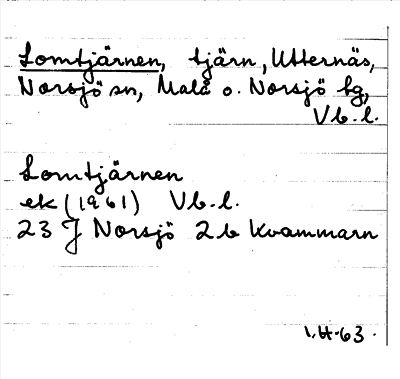 Lomtjärnen, tjärn, Utternäs,
Norsjö sn, Malå o. Norsjö tg,
Vb. l.
Lomtjärnen
ek (1961) Vb. l.
23 J Norsjö 2b Kvammarn